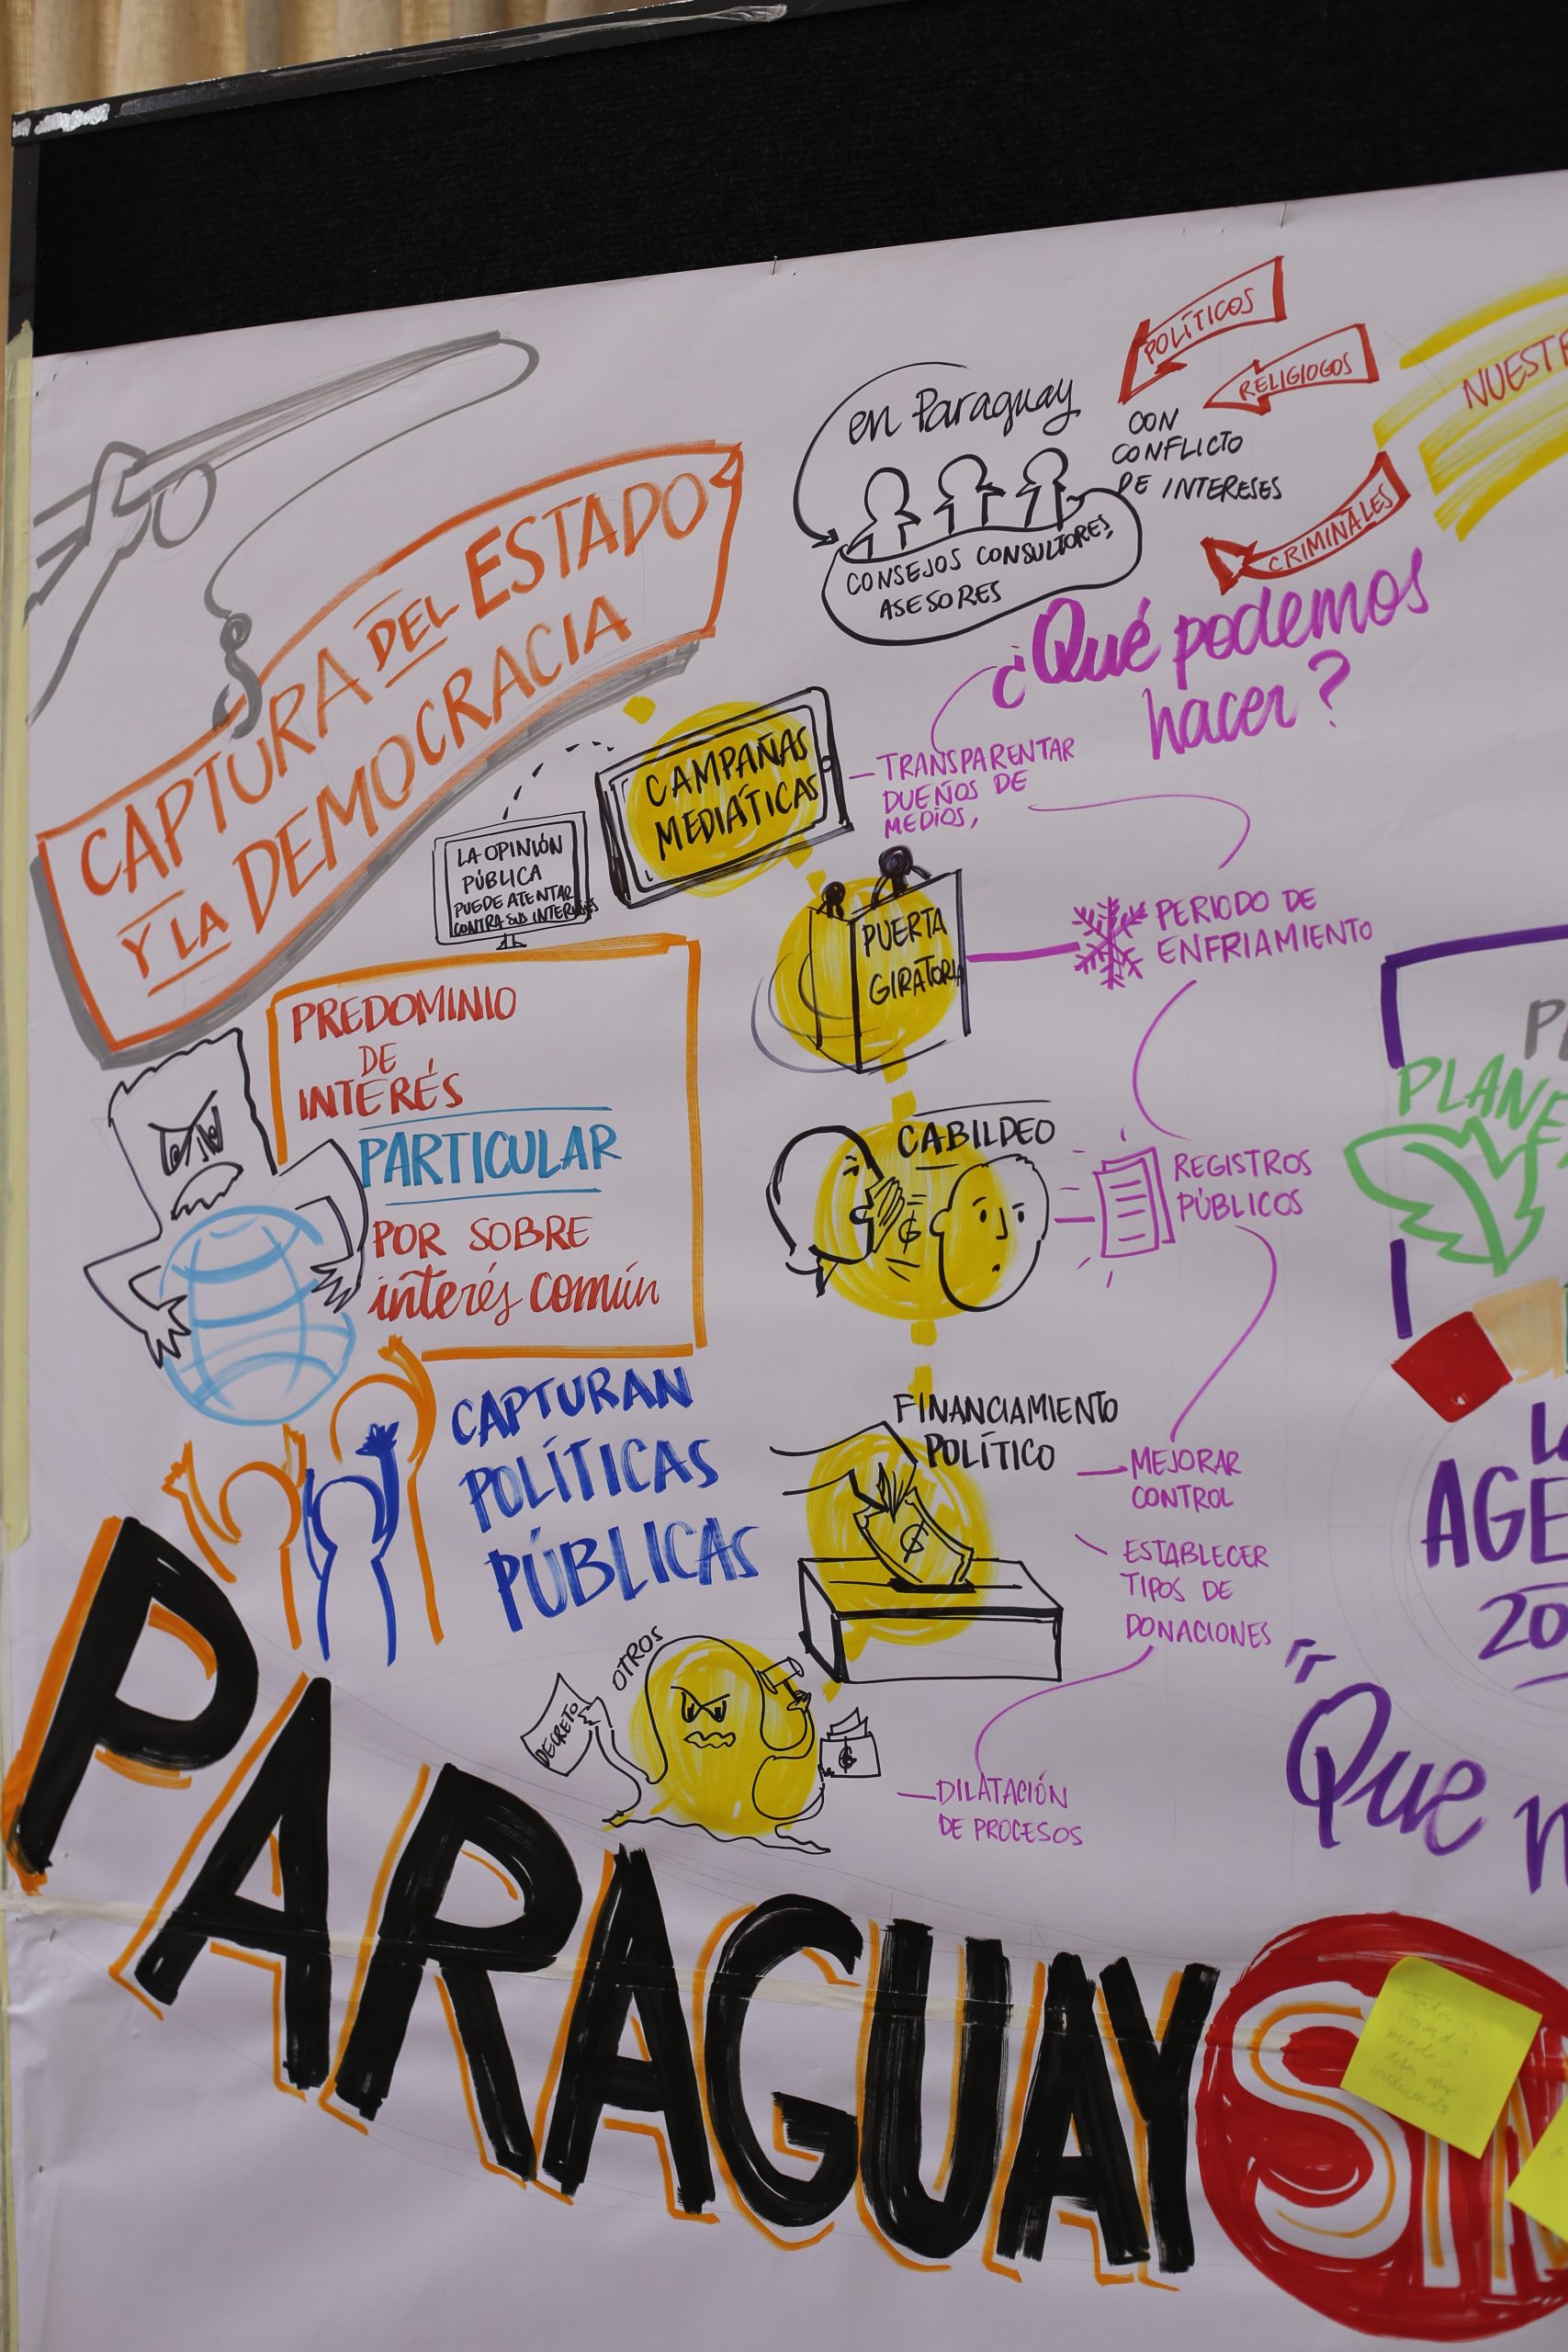 CAPTURA DEL ESTADO
Y LA DEMOCRACIA
en Paraguay
CONSEJOS CONSULTORES,
ASESORES
POLÍTICOS
RELIGIOGOS
CON
CONFLICTO
DE INTERESES
CRIMINALES
¿Qué podemos
hacer?
LA OPINIÓN
PÚBLICA
PUEDE ATENTAR
CONTRA SUS INTERESES
CAMPAÑAS
MEDIÁTICAS
TRANSPARENTAR
DUEÑOS DE
MEDIOS,
PUERTA
GIRATORIA
PERIODO DE
ENFRIAMIENTO
PREDOMINIO
DE
INTERÉS
PARTICULAR
POR SOBRE
interés común
CABILDEO
REGISTROS
PÚBLICOS
CAPTURAN
POLÍTICAS
PÚBLICAS
FINANCIAMIENTO
POLÍTICO
MEJORAR
CONTROL
ESTABLECER
TIPOS DE
DONACIONES
OTROS
DECRETO
DILATACIÓN
DE PROCESOS
PARAGUAY
"Que
20